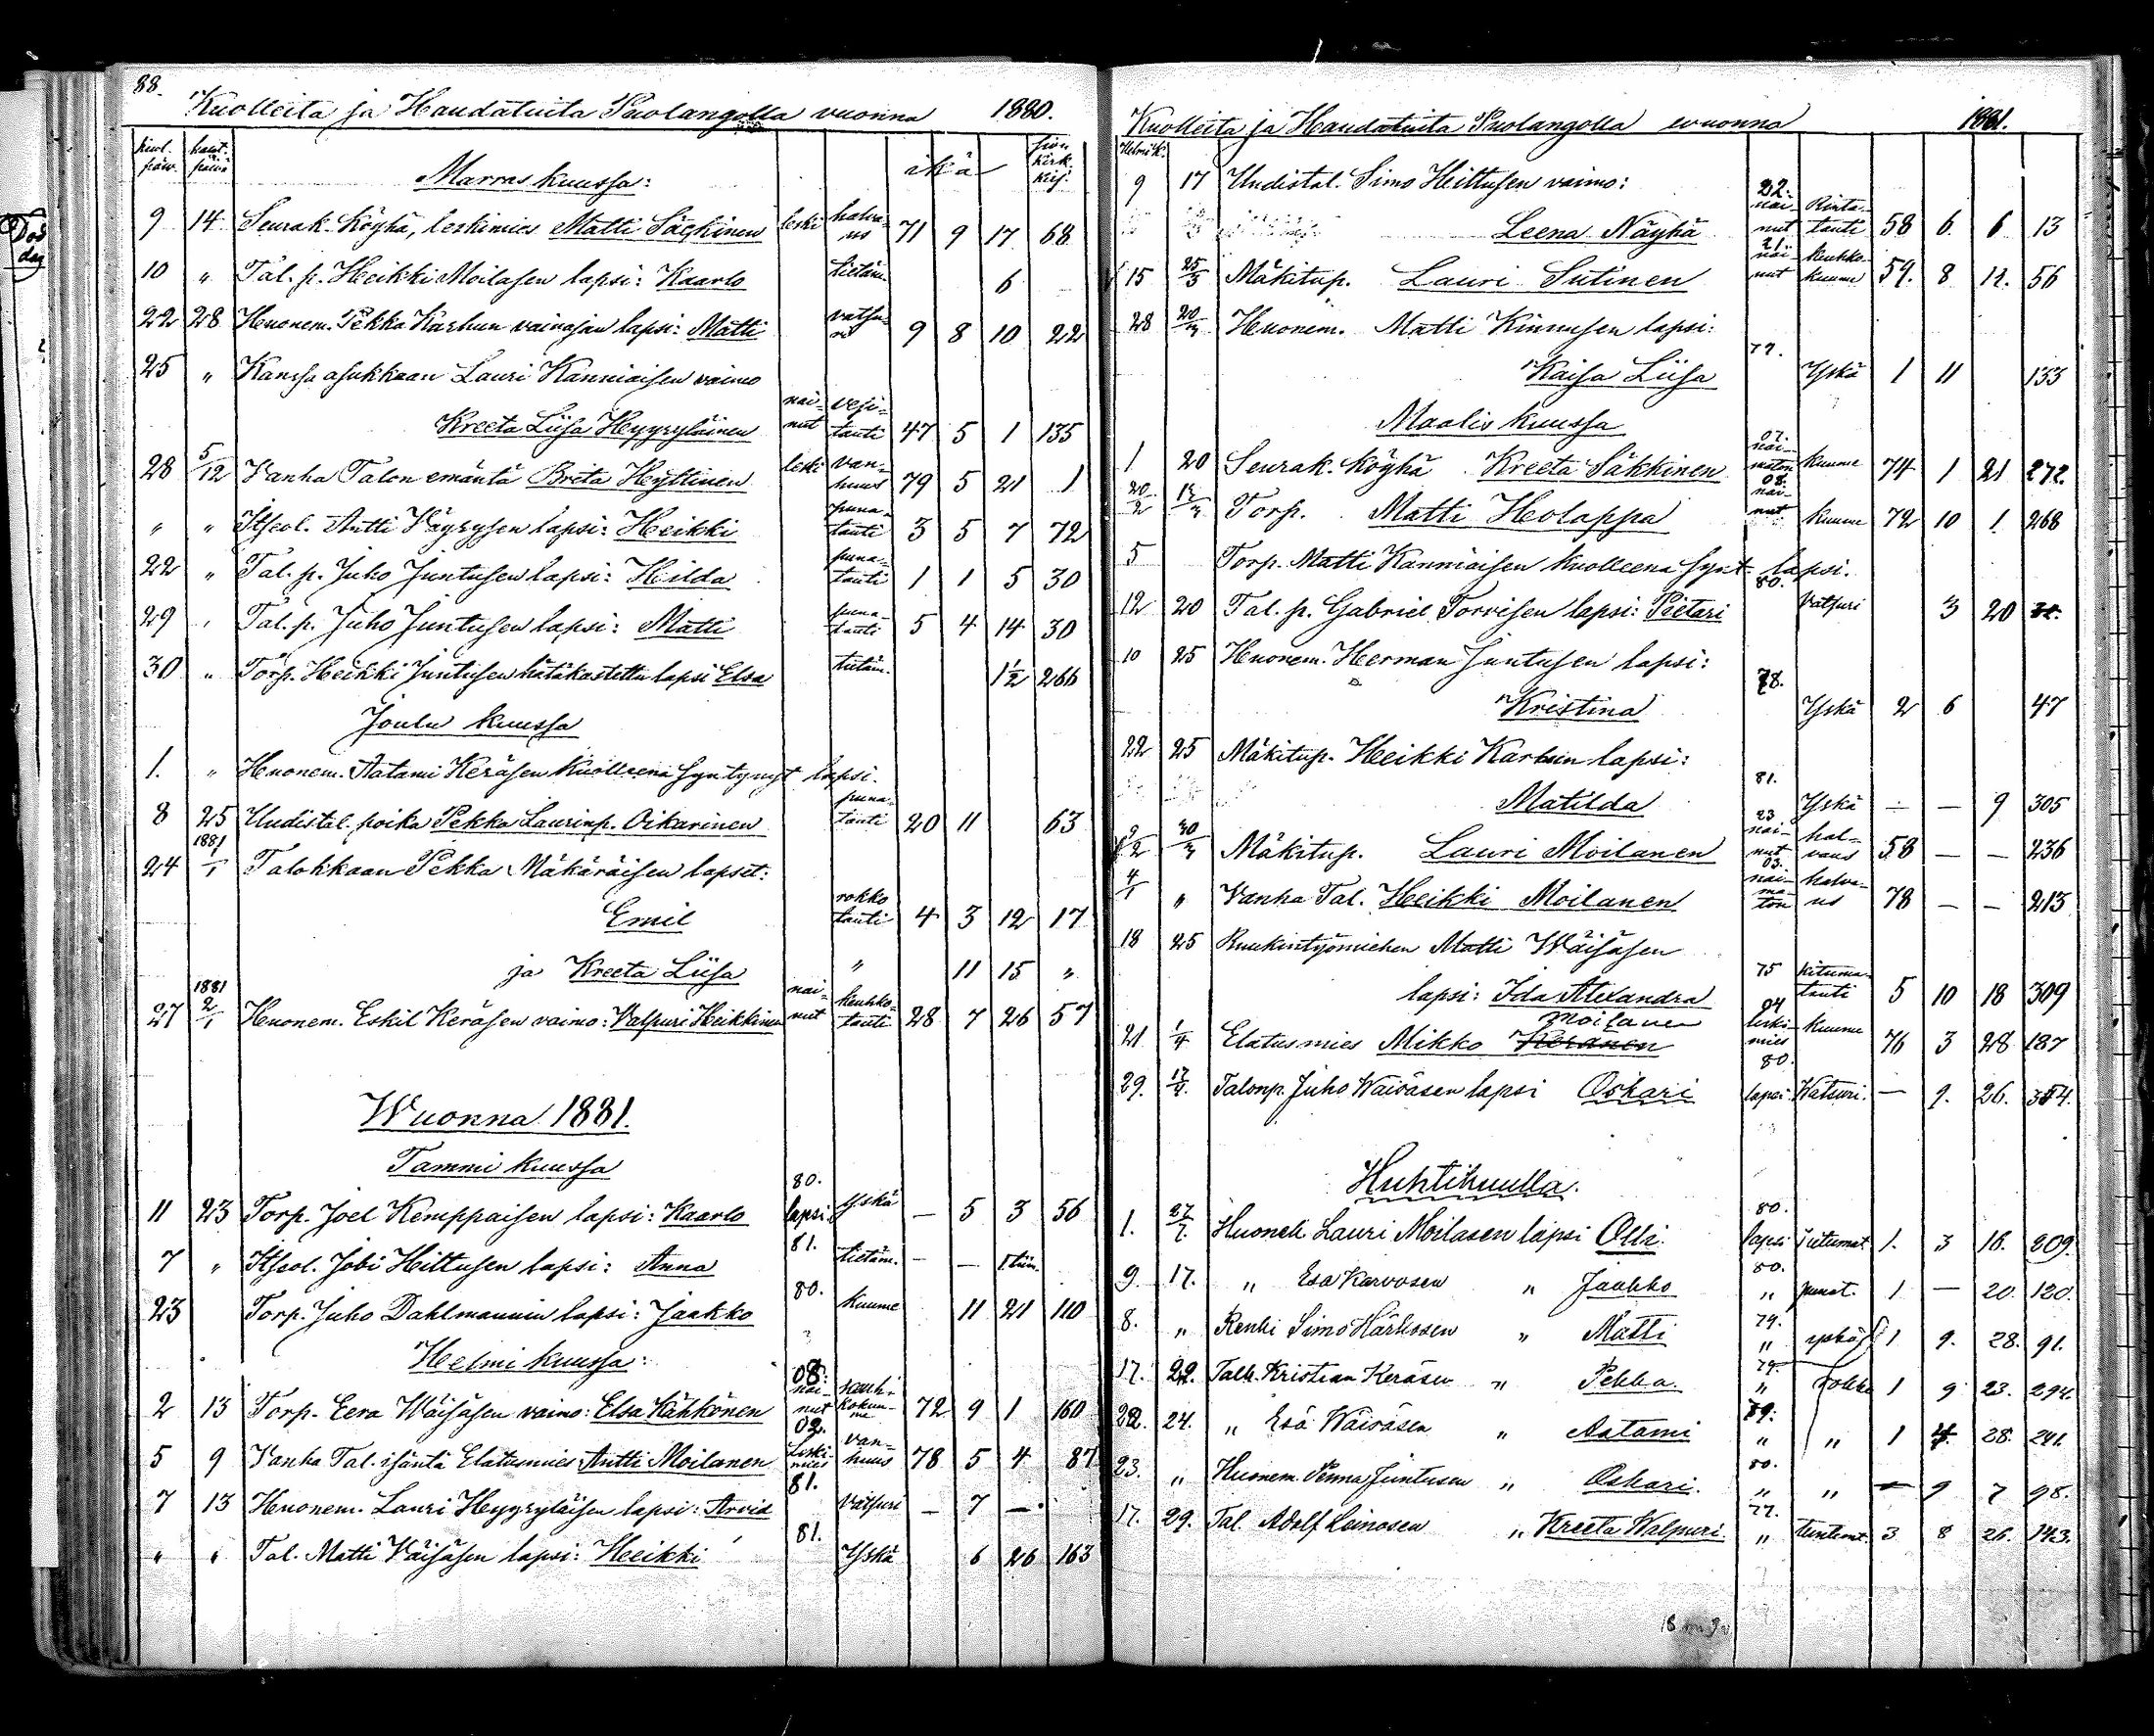 88.
Kuolleita ja Haudatuita Puolangolla vuonna 1880.
kuol. päiv. haut. päivä ikä siv. kirk. kirj.
Marraskuussa:
9 14 Seurak. köyhä, leskimies Matti Säckinen leski halva-us 71 9 17 68
10 „ Tal. p. Heikki Moilasen lapsi: Kaarlo tietäm. 6
22 28 Huonem. Pekka Karhun vaivajan lapsi: Matti 9 8 10 22
25 „ Kanssa asukkaan Lauri Kanniaisen vaimo
Kreeta Liisa Heyryläinen nai-nut vesi-tauti 47 5 1 135
28 5/12 Vanha Talon emäntä Breta Hyttinen leski van-huus 79 5 21 1
„ „ Itseol. Antti Väyrysen lapsi: Heikki puna-tauti 3 5 7 72
22 „ Tal. p. Juho Juntusen lapsi: Hilda puna-tauti 1 1 5 30
29 „ Tal. p. Juho Juntusen lapsi: Matti puna-tauti 5 4 14 30
30 „ Torp. Heikki Juntusen hätäkastettu lapsi Elsa tietäm. 1½ 266
Joulu kuussa
1. „ Huonem. Aatami Keräsen kuolleena syntynyt lapsi.
8 25 Uudistal. poika Pekka Laurinp. Oikarinen puna-tauti 20 11 63
24 1881 Talokkaan Pekka Mäkäräisen lapset:
Emil rokko tauti 4 3 12 17
ja Kreeta Liisa „ 11 15 „
27 1881 2/1 Huonem. Eskil Keräsen vaimo: Valpuri Heikkinen nai-nut keuhko-tauti 28 7 26 57
Wuonna 1881.
Tammi kuussa
11 23 Torp. Joel Kemppaisen lapsi: Kaarlo 80. lapsi Yskä — 5 3 56
7 „ Itseol. Jobi Hittusen lapsi: Anna 81. tietäm. — — 1 tiim.
23 Torp. Juho Dahlmannin lapsi: Jaakko 80. Kuume 11 21 110
Helmi kuussa:
2 13 Torp. Eera Wäisäsen vaimo: Elsa Kähkönen 08. nai-nut 72 9 1 160
5 9 Vanha Tal. isäntä Elätusmies Antti Moilanen 02. Leski mies van-huus 78 5 4 87
7 13 Huonem. Lauri Heyryläisen lapsi: Arvid 81. Vatsuri — 7 —
„ „ Tal. Matti Väisäsen lapsi: Heikki 81. Yskä 6 26 163
Kuolleita ja Haudatuita Puolangolla vuonna 1881.
Helmik.
9 17 Uudistal. Simo Heittusen vaimo:
Leena Näyhä 22. nai-nut Rinta-tauti 58 6 6 13
15 25/3 Mäkitup. Lauri Sutinen 21. nai-nut keuhko-kuume 59. 8 12. 56
28 20/3 Huonem. Matti Kinnusen lapsi:
Kaisa Liisa 79. Yskä 1 11 133
Maalis kuussa
1 20 Seurak. köyhä Kreeta Säkkinen 07. nai-maton kuume 74 1 21 272.
20/2 13/3 Torp. Matti Holappa 08. nai-nut kuume 72 10 1 268
5 Torp. Matti Kanniaisen kuolleena synt. lapsi.
12 20 Tal. p. Gabriel Torvisen lapsi: Pietari 80. Vatsuri 3 20
10 25 Huonem. Herman Juntusen lapsi:
Kristina 78. Yskä 2 6 47
22 25 Mäkitup. Heikki Karhun lapsi:
Matilda 81. Yskä — — 9 305
9/2 30/3 Mäkitup. Lauri Moilanen 23 nai-nut hal-vaus 58 — — 236
4/1 „ Vanha Tal. Heikki Moilanen 03. nai-ma-ton halva-us 78 — — 213
18 25 Ruukintyömiehen Matti Wäisäsen
lapsi: Ida Alexandra 75 kituma-tauti 5 10 18 309
Moilanen
21 1/4 Elatusmies Mikko Keränen 04 leski-mies Kuume 76 3 28 187
29. 17/4. Talonp. Juho Wäisäsen lapsi Oskari 80. lapsi Watsuri. — 9. 26. 354.
Huhtikuulla.
1. 27/7. Huoneh Lauri Moilasen lapsi Olli. 80. lapsi 1. 3 16. 209.
9. 17. „ Esa Karvosen „ Jaakko 80. „ punat. 1 — 20. 120.
8. „ Renki Simo Härkösen „ Matti 79. „ yskä 1 9. 28. 91.
17. 22. Talk. Kristian Keräsen „ Pekka. 79. „ rokko 1 9 23. 294.
22. 24. „ Esa Wäisäsen „ Aatami 79. „ „ 1 4. 28. 241.
23. „ Huonem. Penna Juntusen „ Oskari. 80. „ „ — 9 7 98.
17. 29. Tal. Adolf Leinosen „ Kreeta Walpuri. 77. „ tuntemt. 3 8 26. 143.